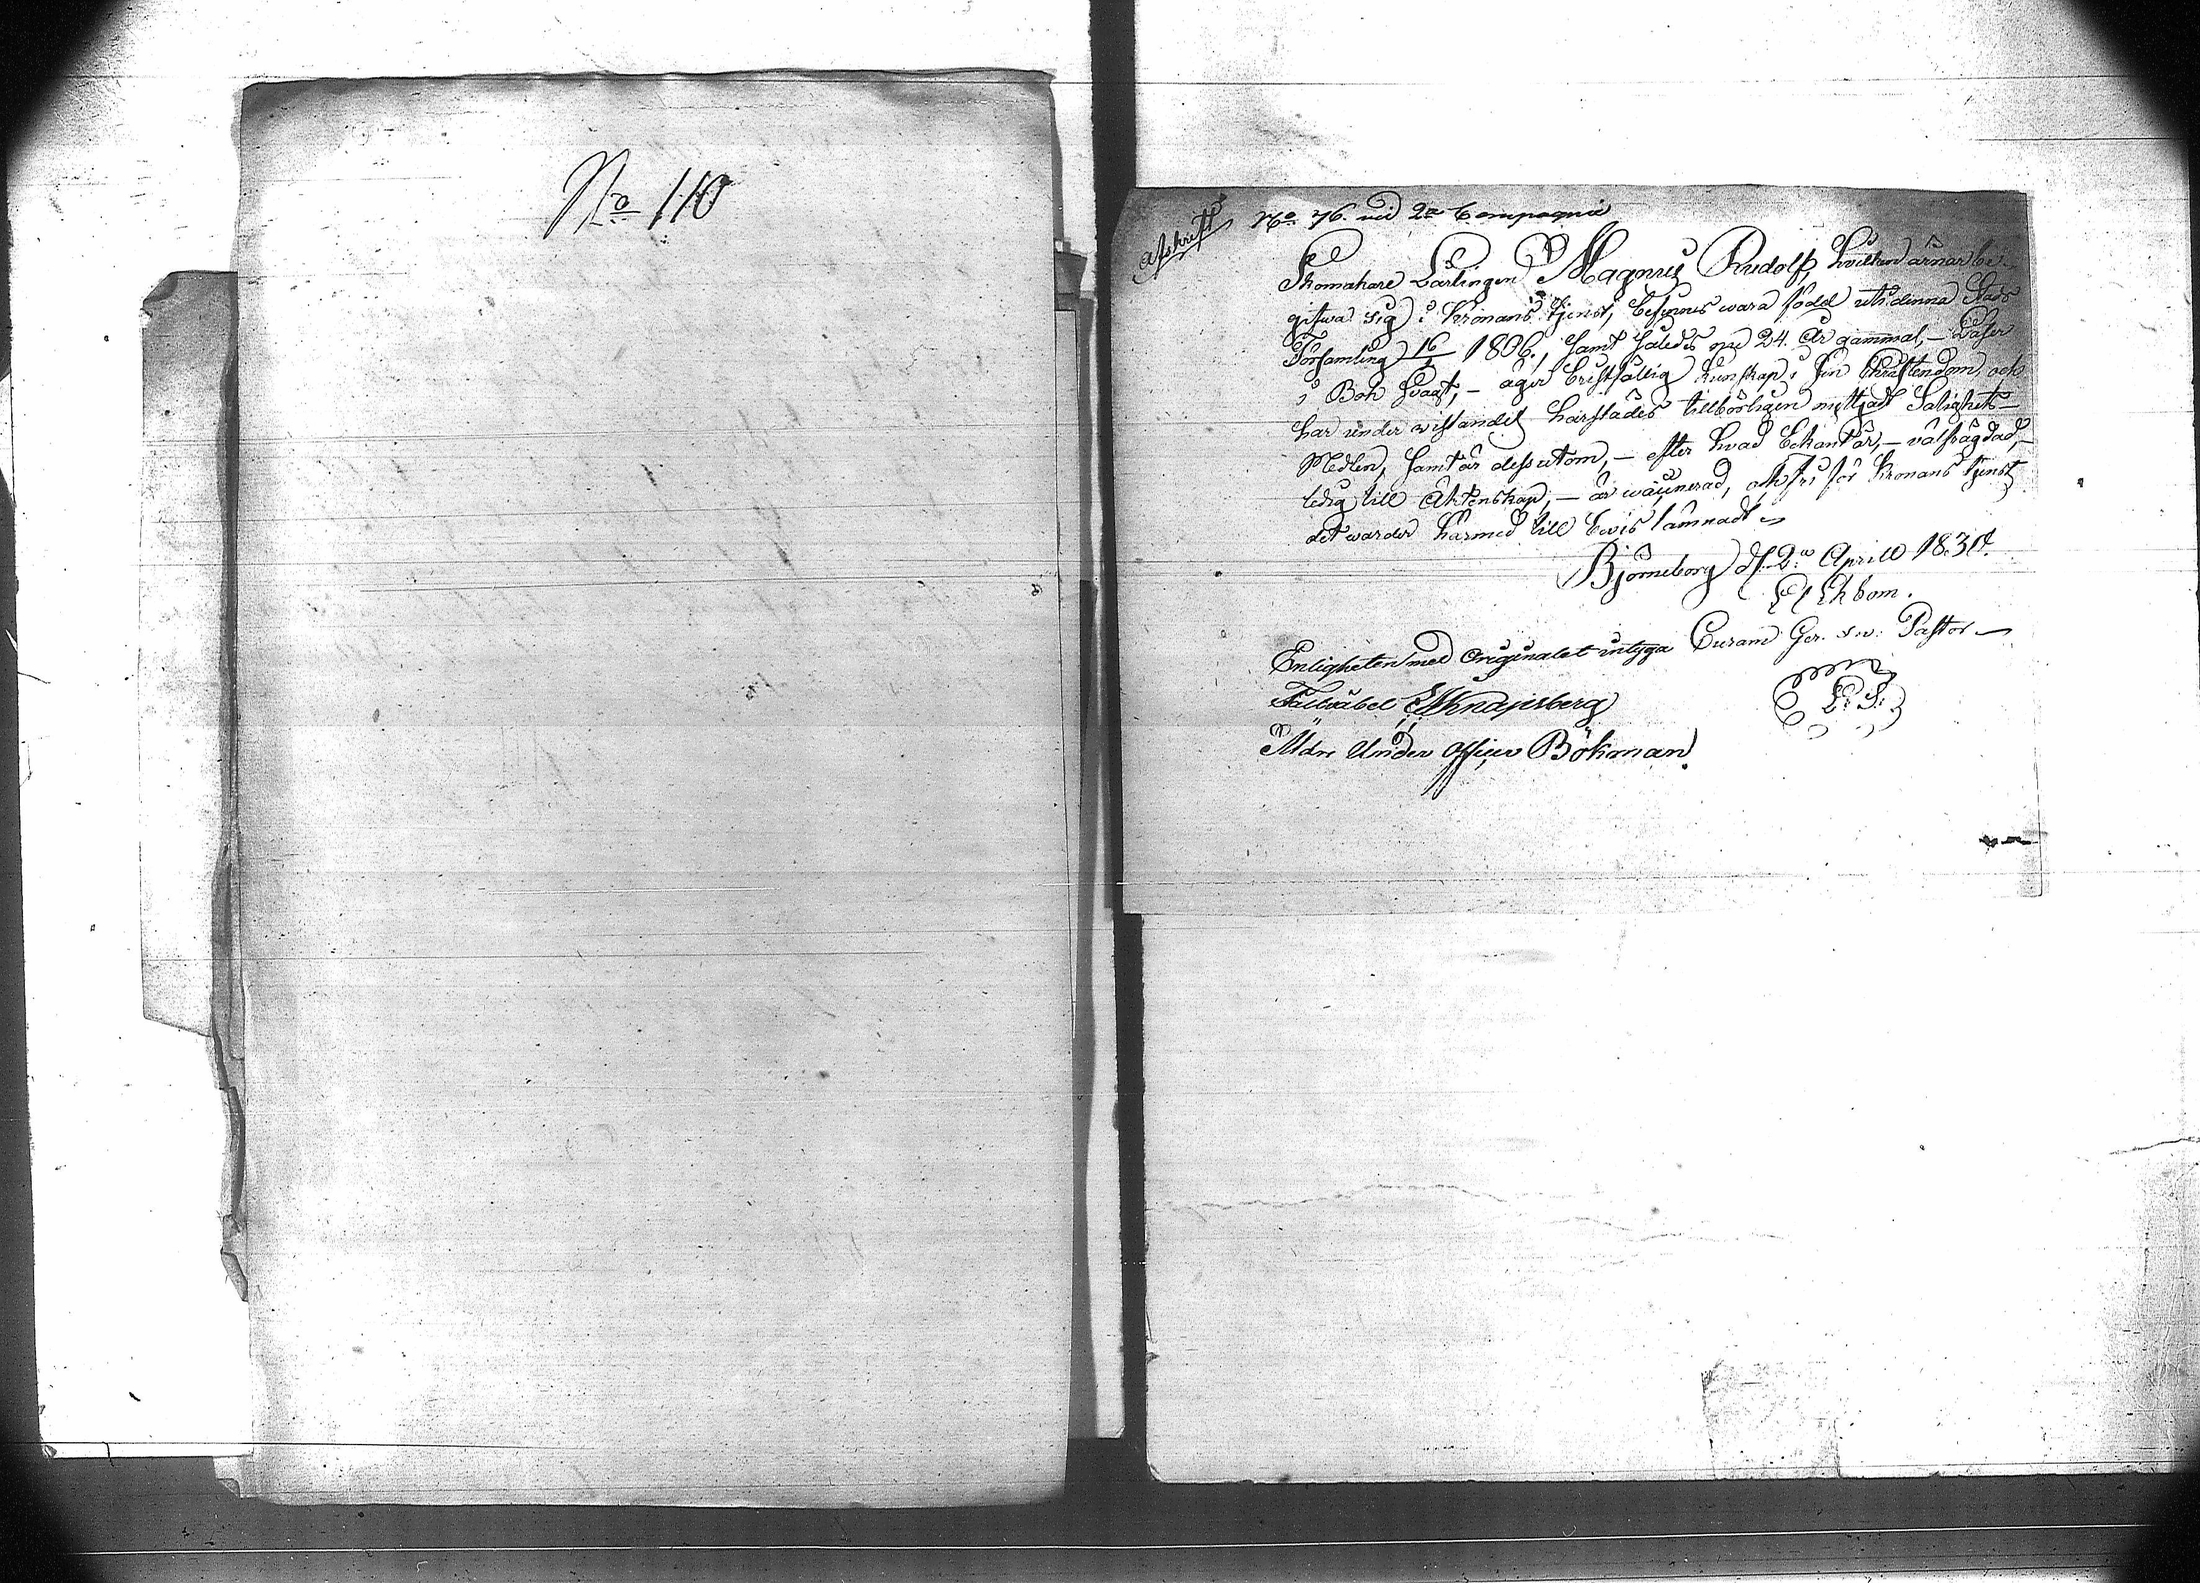 No 110
Afskrift
No 76. vid 2a Compagnie
Skomakare Lärlingen Magnus Rudolf, hvilken ärnar be-
gifwa sig i Kronans tjenst, befinnes wara född uti denna Stads
Församling 16/ 1806, samt således på 24. År gammal, – Läser
i Bok svagt, – äger bristfällig kunskap i sin Christendom, och
har under wistandet härstädes tillbörligen nyttjadt Salighets-
Medlen, samt är dessutom, – efter hvad bekant är, – välfrägdad, –
ledig till Äktenskap, – är waccinerad, och fri för Kronans tjenst
det warder härmed till bevis lämnadt
Björneborg d. 2a Aprill 1831.
Ekbom.
Enligheten med Originalet intyga
Curam Ger. sw. Pastor
Fältväbel Knapsberg
L. S.
Äldre Under Officer Bökman.